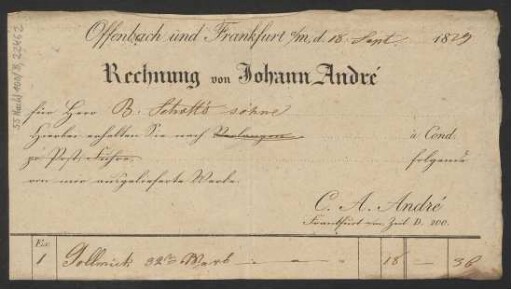 Offenbach und Frankfurt a/m, d. 18. Sept. 1829
Rechnung von Johann André
für Herr B. Schott's söhne
Hierbei erhalten Sie nach Verlangen à Cond.
pr Post: Fuhre. folgende
von mir ausgelieferte Werke
C. A. André
Frankfurt am Zeil D. 200.
Ex:
1 Gollmick 32tes Werk — — — 18 — 36